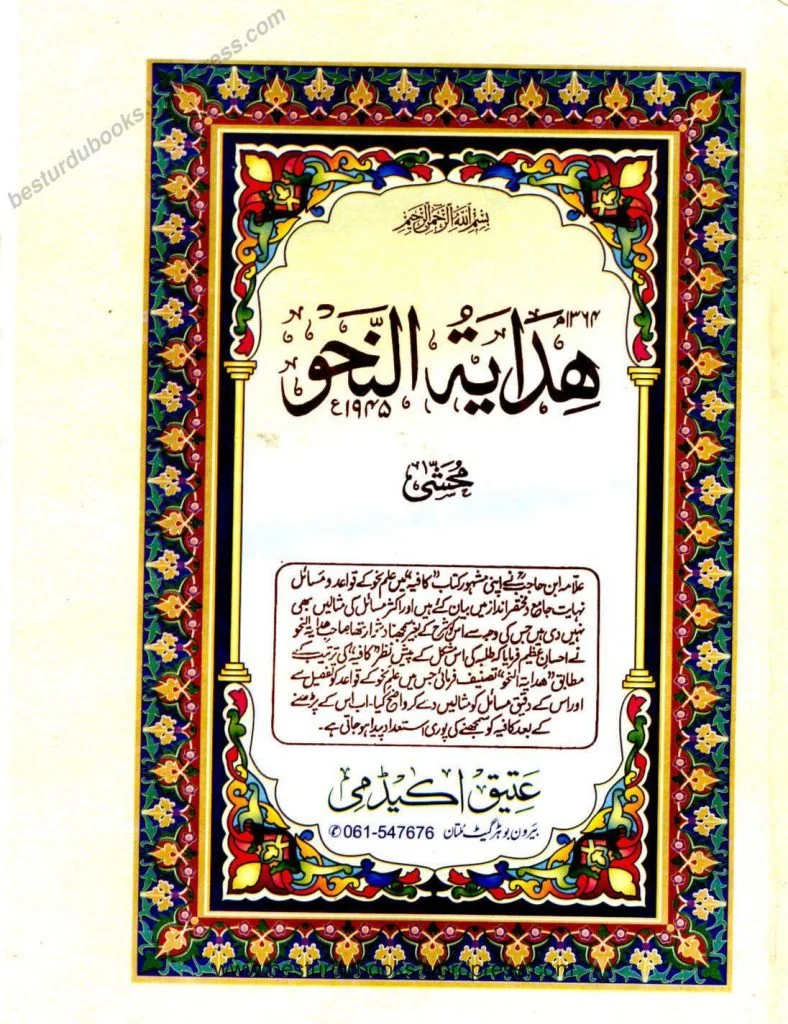 besturdubooks.wordpress.com
بِسْمِ اللّٰهِ الرَّحْمٰنِ الرَّحِيْمِ
۱۳۶۴ھ
هِدَايَةُ النَّحْوِ
۱۹۴۵ء
مُحَشّٰی
علامہ ابن حاجبؒ نے اپنی مشہور کتاب "کافیہ" میں علم نحو کے قواعد و مسائل
نہایت جامع و مختصر انداز میں بیان کئے ہیں اور اکثر مسائل کی مثالیں بھی
نہیں دی ہیں جس کی وجہ سے اس کو شرح کے بغیر سمجھنا دشوار تھا صاحب هداية النحو
نے احسان عظیم فرمایا کہ طلبہ کی اس مشکل کے پیش نظر "کافیہ" کی ترتیب کے
مطابق "هداية النحو" تصنیف فرمائی جس میں علم نحو کے قواعد کو تفصیل سے
اور اس کے دقیق مسائل کو مثالیں دے کر واضح کیا۔ اب اس کے پڑھنے
کے بعد کافیہ کو سمجھنے کی پوری استعداد پیدا ہو جاتی ہے۔
عتیق اکیڈمی
بیرون بوہڑ گیٹ ملتان ✆061-547676